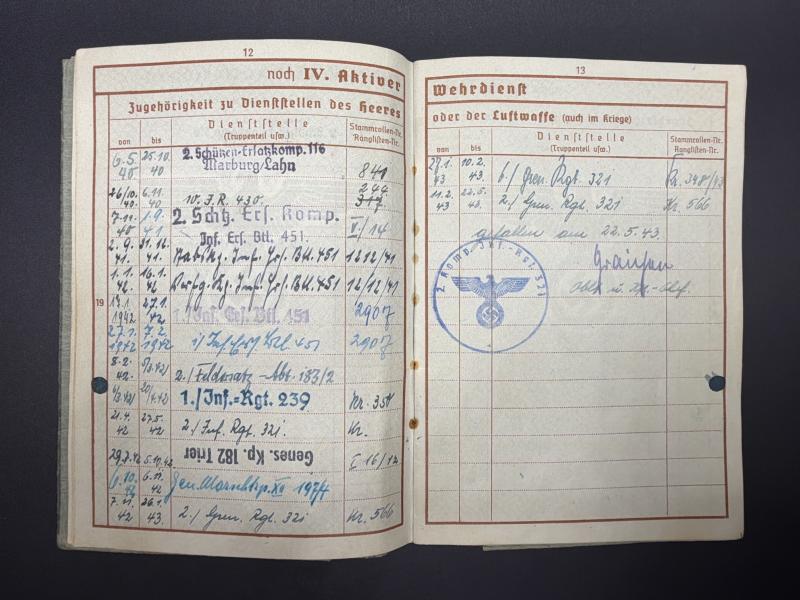 12
noch IV. Aktiver
Zugehörigkeit zu Dienststellen des Heeres
von
bis
Dienststelle
(Truppenteil usw.)
Stammrollen-Nr.
Ranglisten-Nr.
6.5. 40 25.10. 40 2. Schützen-Ersatzkomp. 116 Marburg/Lahn 840
26/10. 40 6.11. 40 I.R. 430. 244 317
7.11. 40 1.9. 41 2. Schtz. Ers. Komp. Inf. Ers. Btl. 451. V/14
2.9. 41. 31.12. 41. Inf. Ers. Btl. 451 12/12/41
1.1. 42 16.1. 42 Inf. Ers. Btl. 451 12/12/41
19
17.1. 1942 27.1. 42 1./Inf. Ers. Btl. 451 2907
27.1. 1942 7.2. 1942 451 2907
8.2. 42. 2./Feldersatz-Abt. 183/2
1./Inf.=Rgt. 239 Kr. 351
21.4. 42 27.5. 42 2./Inf. Rgt. 321. Kr.
5.10.42 Genes. Kp. 182 Trier I 16/12
6.10. 42 6.11. 42 Gen. Marschkp. XII
7.11. 42 26.1. 43. 2./Gren. Rgt. 321 Kr. 566
13
Wehrdienst
oder der Luftwaffe (auch im Kriege)
von
bis
Dienststelle
(Truppenteil usw.)
Stammrollen-Nr.
Ranglisten-Nr.
27.1. 43 10.2. 43 6./Gren. Rgt. 321 Kr. 348/43
11.2. 43 22.5. 43. 2./Gren. Rgt. 321 Kr. 566
gefallen am 22.5.43.
2. Komp. Inf.-Rgt. 321